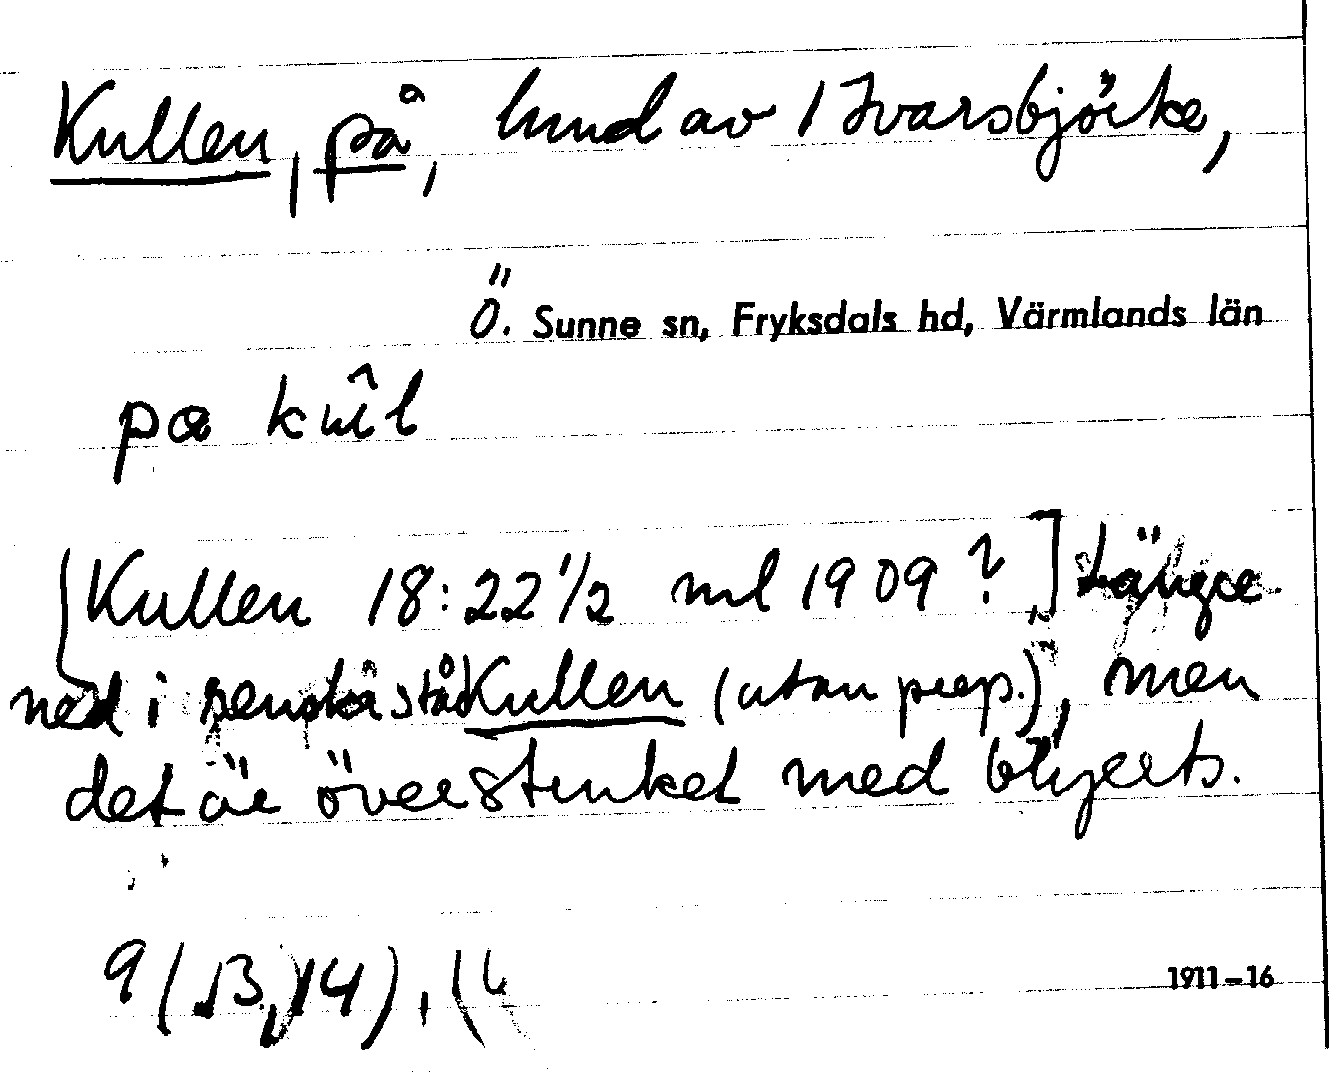 Kullen, på, hmd av 1 Ivarsbjörke,
Ö. Sunne sn, Fryksdals hd, Värmlands län
pα kûl
[Kullen 18:22 1/2 ml 1909?] Längre
ned i står Kullen (utan prep.), men
det är överstruket med blyerts.
9 (13, 14),
1911-16